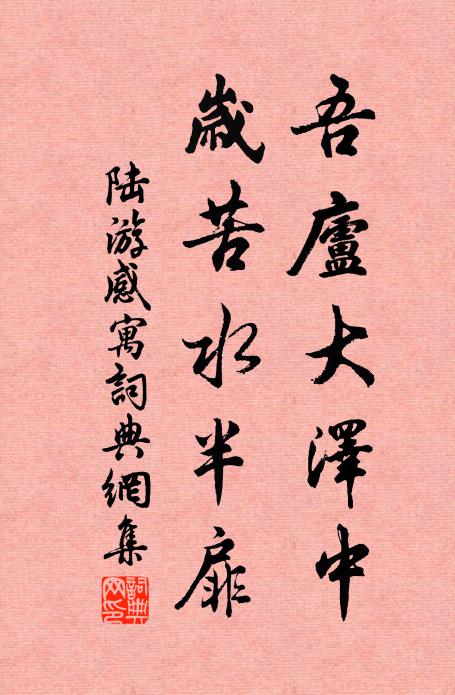 吾廬大澤中
歲苦水半扉
陸游感寓詞典網集
詞典
网印